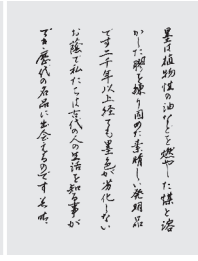 墨は植物性の油などを燃やした煤と溶
かした膠を練り固めた素晴しい発明品
です二千年以上経ても墨色が劣化しない
お陰で私たちは古代の人の生活を知る事が
でき歴代の名品に出会えるのです